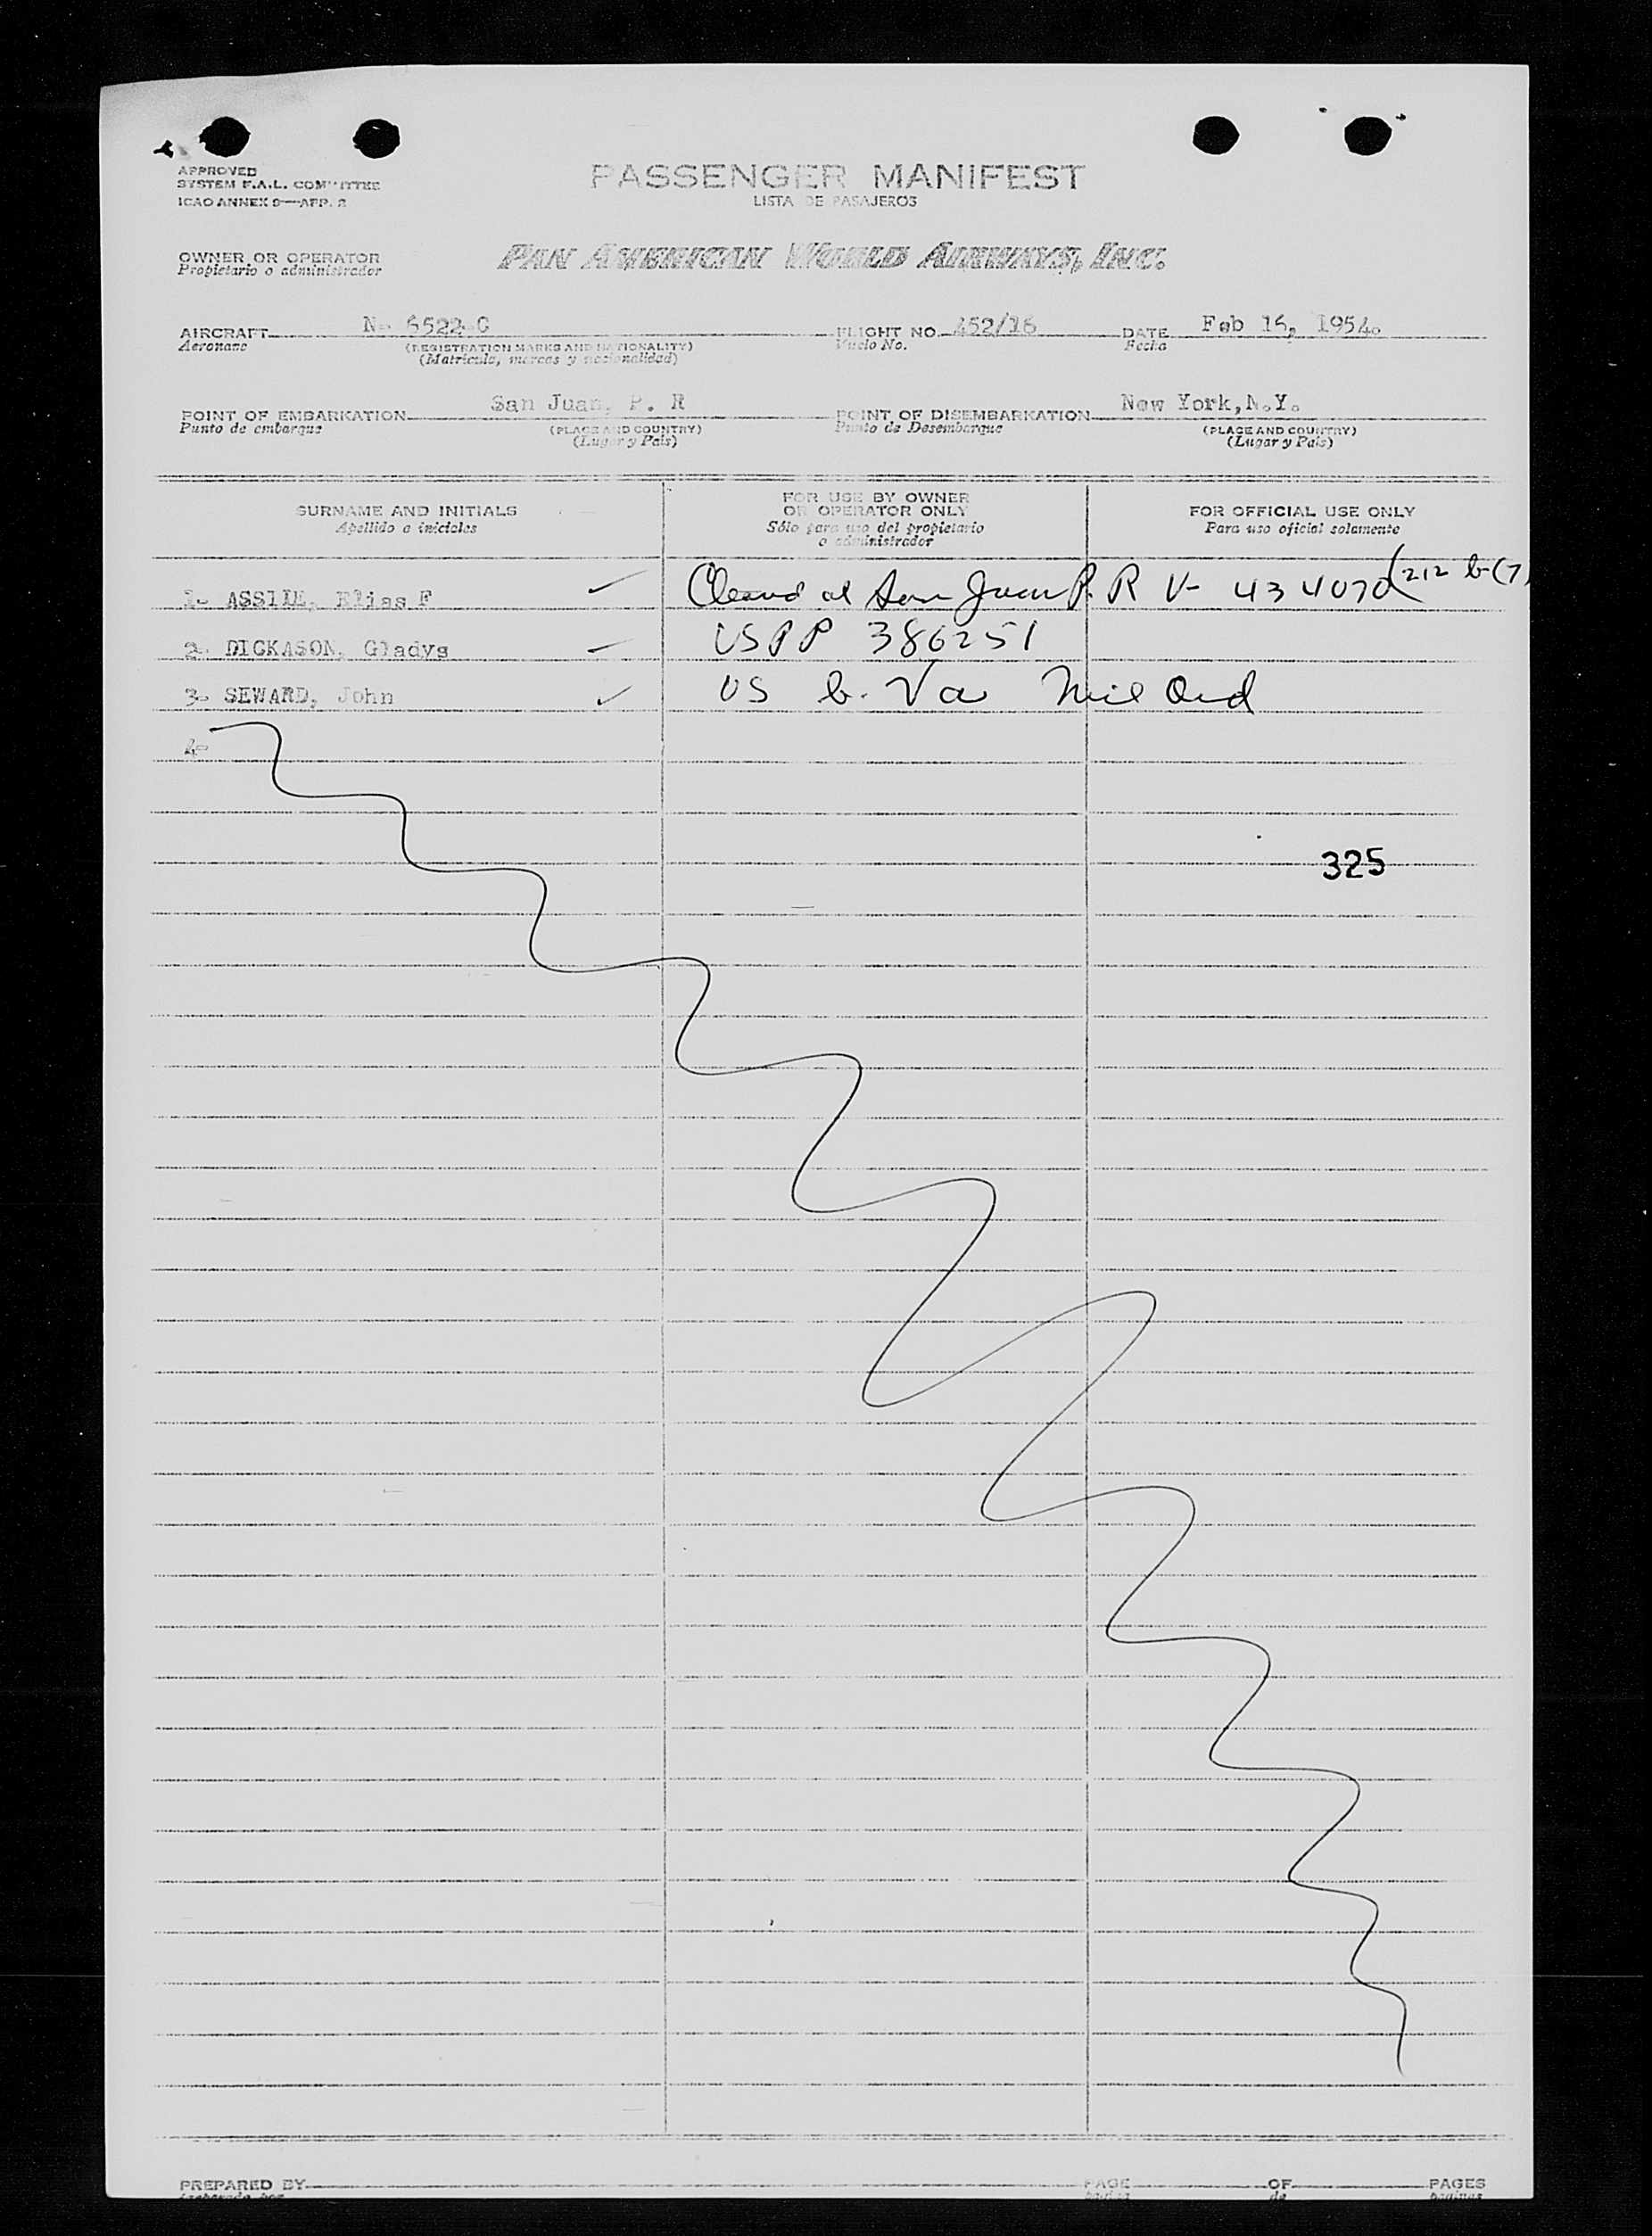 APPROVED
SYSTEM F.A.L. COMMITTEE
ICAO ANNEX 9—APP. 2
PASSENGER MANIFEST
LISTA DE PASAJEROS
OWNER OR OPERATOR
Propietario o administrador
PAN AMERICAN WORLD AIRWAYS, INC.
AIRCRAFT N- 6522 C FLIGHT NO. 452/16 DATE Feb 16, 1954.
Aeronave (REGISTRATION MARKS AND NATIONALITY) Vuelo No. Fecha
(Matricula, marcas y nacionalidad)
POINT OF EMBARKATION San Juan, P. R POINT OF DISEMBARKATION New York, N.Y.
Punto de embarque (PLACE AND COUNTRY) Punto de Desembarque (PLACE AND COUNTRY)
(Lugar y País) (Lugar y País)
SURNAME AND INITIALS FOR USE BY OWNER OR OPERATOR ONLY FOR OFFICIAL USE ONLY
Apellido o iniciales Sólo para uso del propietario o administrador Para uso oficial solamente
1- Elias F ✓ at San Juan P. R V- 434070 (212 b (7)
2- DICKASON, Gladys US PP 386251
3- SEWARD, John ✓ US b. Va
4-
325
PREPARED BY PAGE OF PAGES
página de páginas